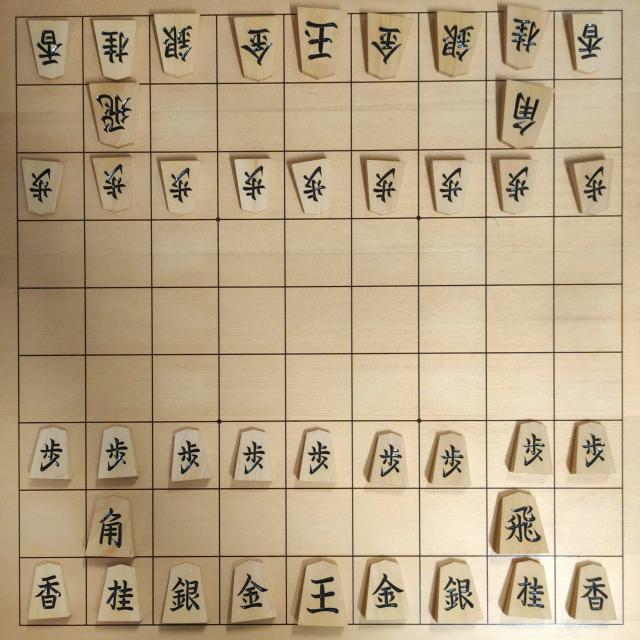 香桂銀金王金銀桂香
飛角
歩歩歩歩歩歩歩歩歩
歩歩歩歩歩歩歩歩歩
角飛
香桂銀金王金銀桂香